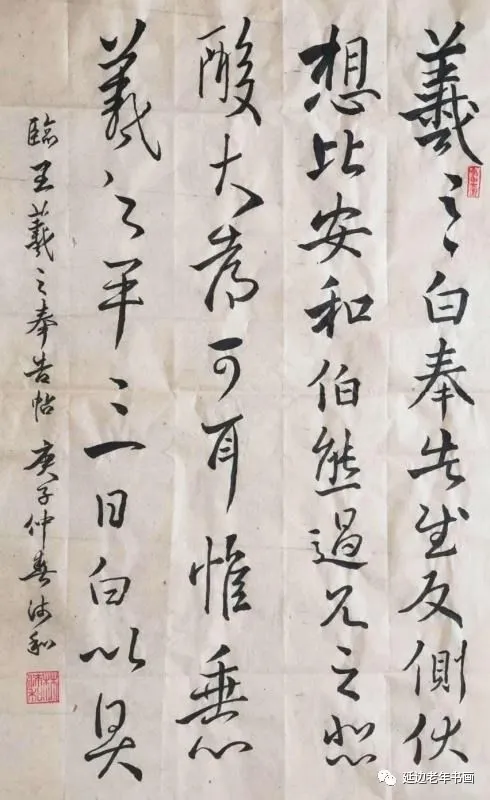 羲之白奉告反側伏
想比安和伯熊過見之悲
酸大可耳惟垂心
羲之平二日白以具
臨王羲之奉告帖 庚子仲春沛和
延边老年书画